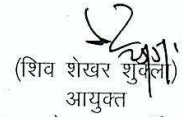 (शिव शेखर शुक्ला)
आयुक्त